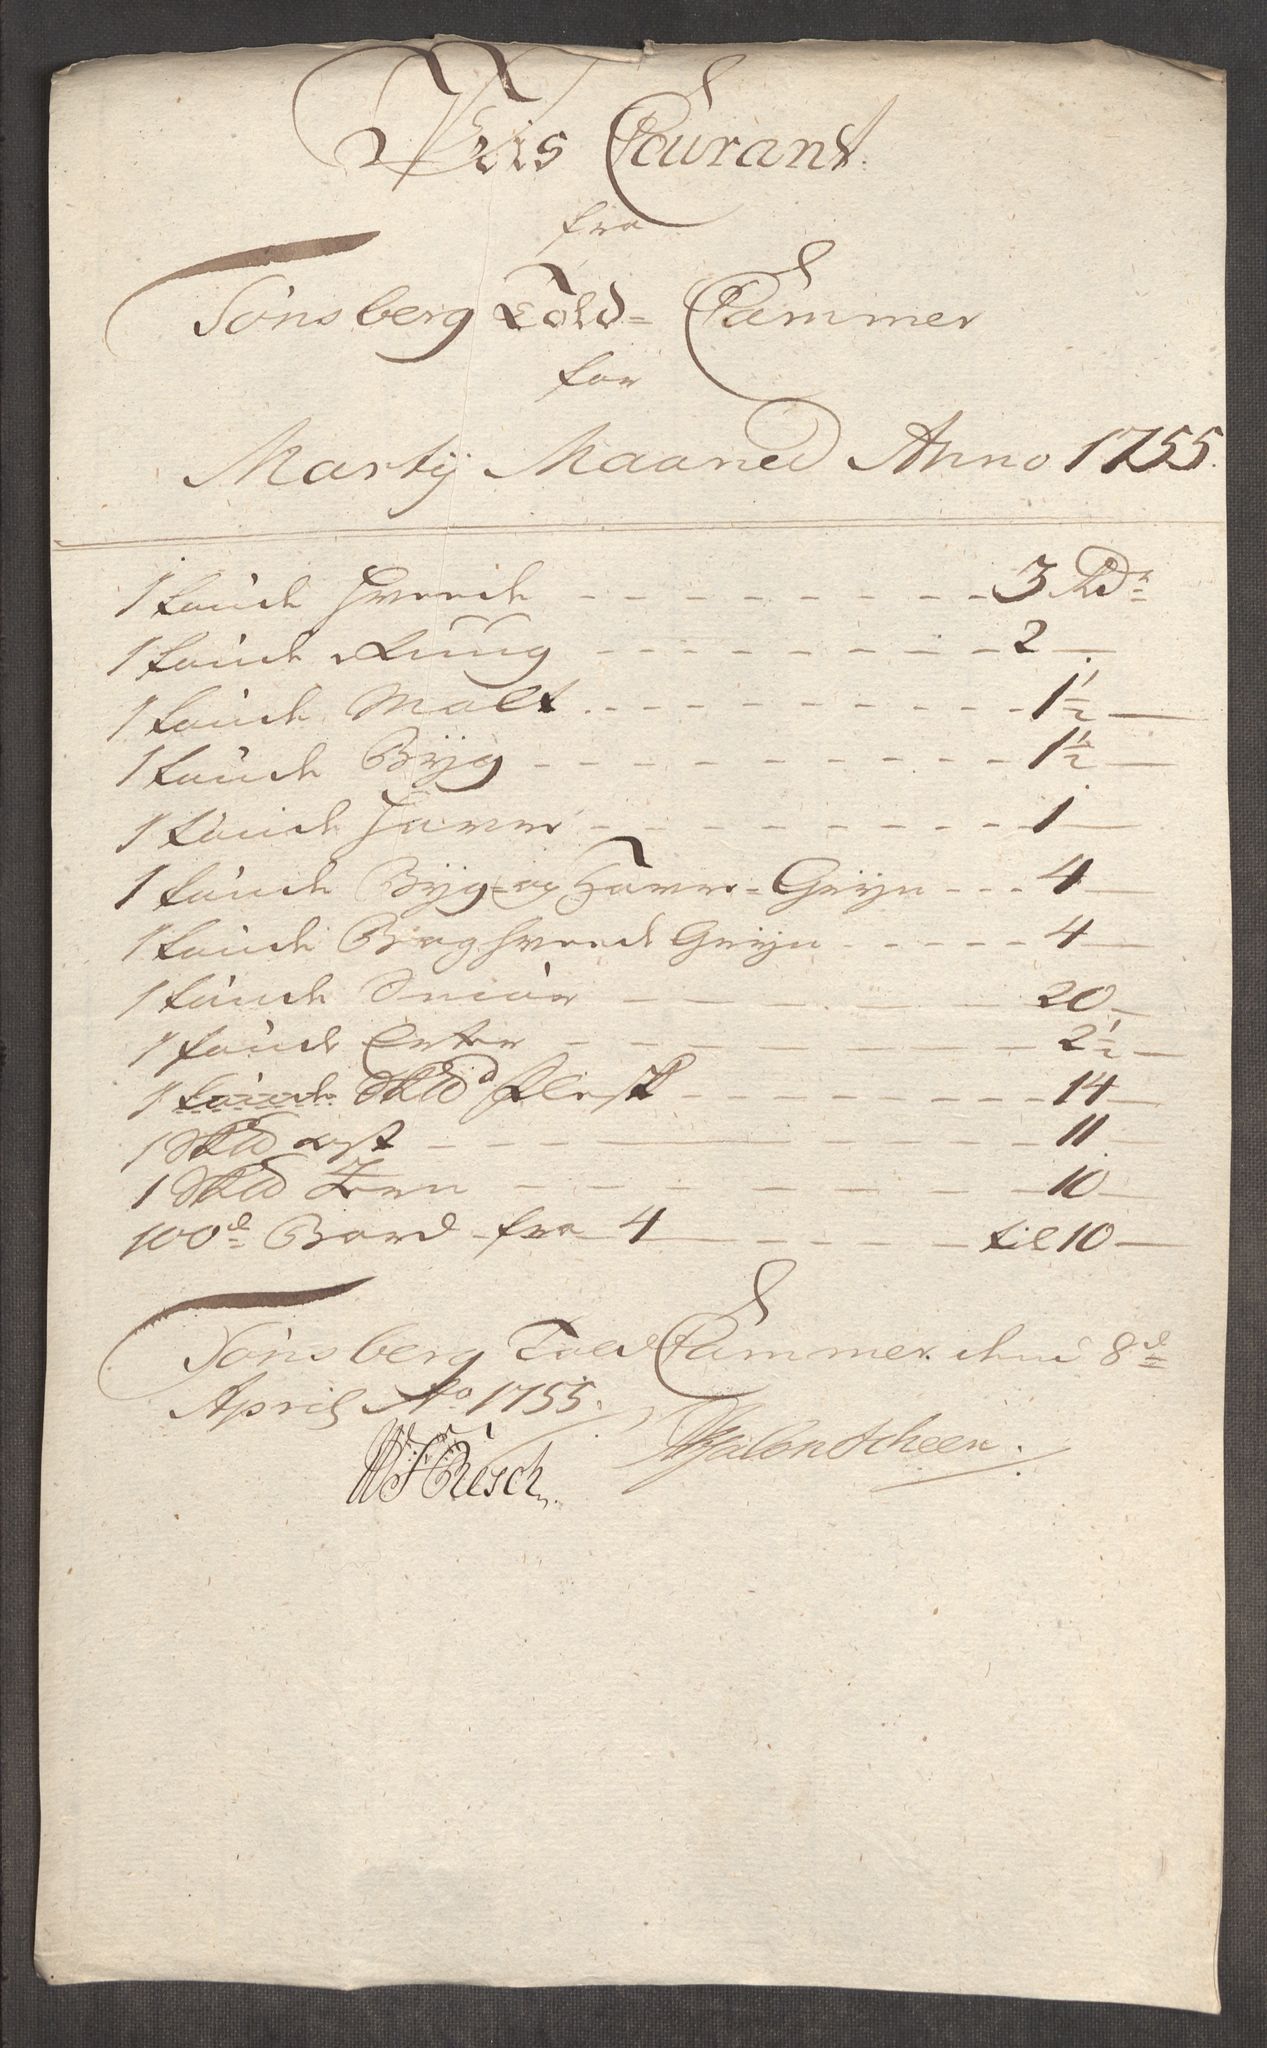 Priis Courant
fra
Tønsberg Told-Cammer
for
Martij Maaned Anno 1755.
1 tønde Hvede 3 Rdr
1 tønde Rug 2
1 tønde Malt 1½
1 tønde Byg 1½
1 tønde Havre 1
1 tønde Byg- og Havre-Gryn 4
1 tønde Boghvede Gryn 4
1 tønde Smør 20
1 tønde Erter 2½
1 tønde Sk℔d flesk 14
1 Sk℔d ost 11
1 Sk℔d Jern 10
100de Bord fra 4 til 10
Tønsberg Told Cammer den 8de
April Ao 1755.
Resch